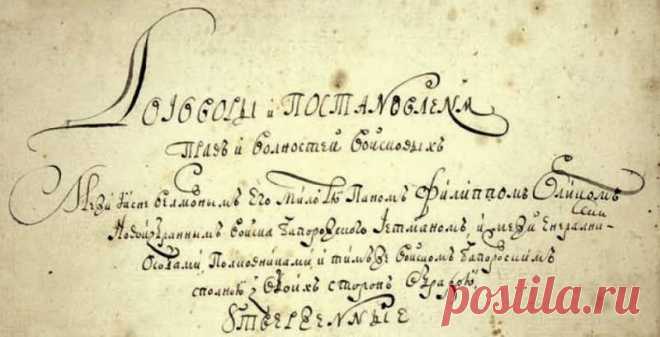 Договоры и Постановленя
Правъ и волностей войсковыхъ
Межи Ясне велможнымъ Его Милостю Паномъ Филиппомъ Орликомъ
Новоизбраннымъ Войска Запорозкого Гетманомъ, и межи Енералними
Особами, Полковниками, и тимъ же Войскомъ Запорозскимъ
сполною з обоихъ сторонъ обрадою
Утверженные
postila.ru